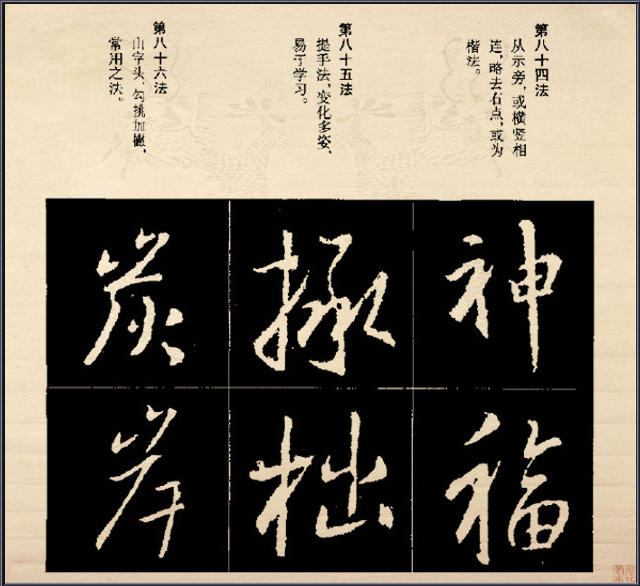 第八十四法
从示旁，或横竖相
连，略去右点，或为
楷法。
第八十五法
提手法，变化多姿，
易于学习。
第八十六法
山字头、勾挑加撇，
常用之法。
神
福
掾
拙
炭
岸